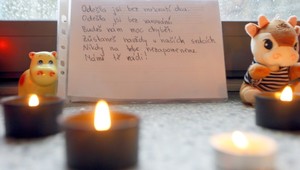 Odešla jsi bez
Odešla jsi bez
Budeš nám moc chybět.
Zůstaneš navždy v našich srdcích.
Nikdy na tebe nezapomeneme.
Máme tě rádi!